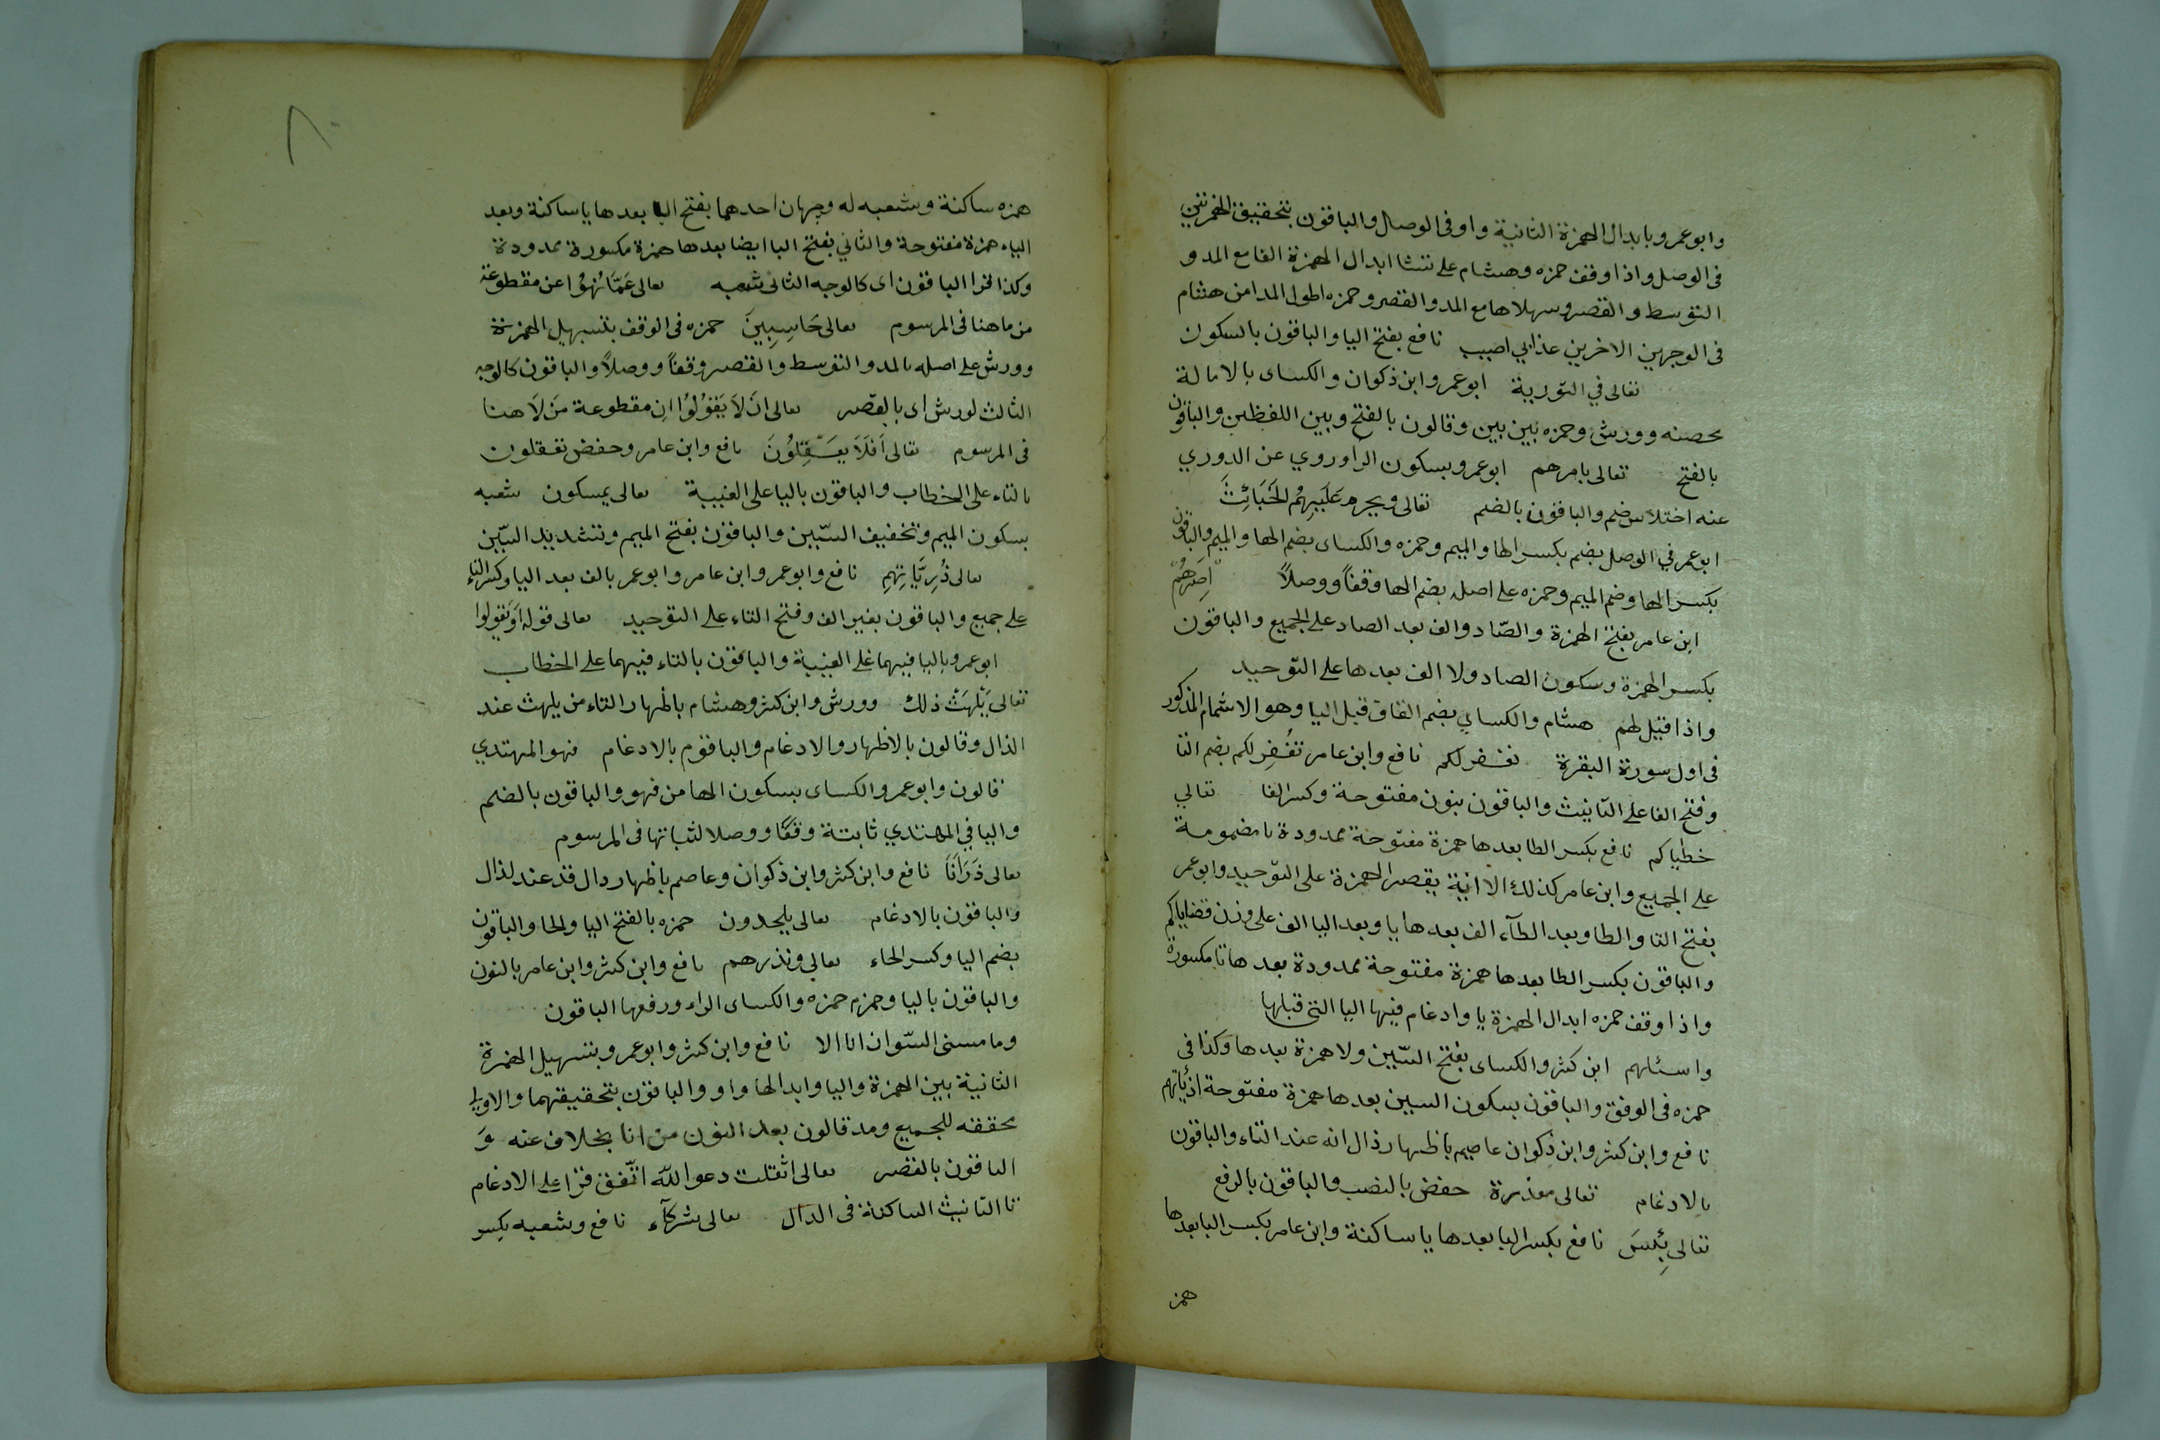 وابو عمرو بابدال الهمزة الثانية واو في الوصل والباقون بتحقيق الهمزتين
في الوصل واذا وقف حمزه وهشام على تشا ابدال الهمزة الفا مع المد و
التوسط والقصر وسهلاها مع المد والقصر وحمزه اطول المدا من هشام
في الوجهين الاخرين عذابي اصيب نافع بفتح اليا والباقون بالسكون
تعالى في التورية ابو عمرو وابن ذكوان والكساى بالامالة
محضنه وورش وحمزه بين بين وقالون بالفتح وبين اللفظين والباقون
بالفتح تعالى يامرهم ابو عمرو بسكون الرا وروي عن الدوري
عنه اختلاس ضم والباقون بالضم تعالى ويحرم عَلَيهِمُ الخَبَائِثَ
ابو عمر في الوصل بضم بكسر الها والميم وحمزه والكساى بضم الها والميم والباقون
بكسر الها وضم الميم وحمزه على اصله بضم الها وقفاً ووصلاً اِصَرهُمْ
ابن عامر بفتح الهمزة والصّاد والف بعد الصاد على الجميع والباقون
بكسر الهمزة وسكون الصاد ولا الف بعدها على التوحيد
واذا قيل لهم هشام والكسايي بضم القاف قبل اليا وهو الاشمام المذكور
في اول سورة البقرة نغفر لكم نافع وابن عامر تُغْفِر لكم بضم التا
وفتح الفا على التانيث والباقون بنون مفتوحة وكسر الفا تعالي
خطياكم نافع بكسر الطا بعدها همزة مفتوحة ممدودة تا مضمومة
على الجميع وابن عامر كذلك الا انية يقصر الهمزة على التوحيد وابو عمر
بفتح التا والطا وبعد الطآء الف بعدها يا وبعد اليا الف على وزن قضاياكم
والباقون بكسر الطا بعدها همزة مفتوحة ممدودة بعدها تا مكسورة
واذا وقف حمزه ابدال الهمزة يا وادغام فيها اليا التى قبلها
واسئلهم ابن كثر والكساى بفتح السّين ولا همزة بعدها وكذا في
حمزه في الوفق والباقون بسكون السين بعدها همزة مفتوحة اذ تأتيهم
نافع وابن كثر وابن ذكوان عاصم باظهار ذال انه عند التاء والباقون
بالادغام تعالى معذرة حفض بالنصب والباقون بالرفع
تعالى بِئسَ نافع بكسر البا بعدها يا ساكنة وابن عامر بكسر البا بعدها
همز
همزه ساكنة وشعبه له وجهان احدهما بفتح البا بعدها يا ساكنة وبعد
الياء همزة مفتوحة والثاني بفتح البا ايضا بعدها همزة مكسورة ممدودة
وكذا قرا الباقون اى كالوجه الثانى شعبه تعالى عَمَّا نُهُوُا عن مقطوعة
من ما هنا فى المرسوم تعالى خَاسِيِينَ حمزه في الوقف بتسهيل الهمزة
وورش على اصله بالمد والتوسط والقصر وقفاً ووصلاً والباقون كالوجه
الثالث لورش اى بالقصر تعالى ان لاَ يَقوُلوُا ان مقطوعة من لا هنا
في المرسوم تعالى اَفلاَ يعَقِلُونَ نافع وابن عامر وحفض تعقلون
بالتاء على الخطاب والباقون باليا على الغيبة تعالى يمسكون شعبه
بسكون الميم وتخفيف السّيين والباقون بفتح الميم وتشديد السّين
تعالى ذُرِيَّاتِهِم نافع وابو عمرو وابن عامر وابو عمر بالف بعد اليا وكسر التاء
على جميع والباقون بغير الف وفتح التاء على التوحيد تعالى قوله اَوَتقولوا
ابو عمرو باليا فيهما على الغيبة والباقون بالتاء فيهما على الخطاب
تعالى يَلهَثْ ذلك وورش وابن كثر وهشام بالمهار الثاء من يلهث عند
الذال وقالون بالاظهار والادغام والباقوم بالادغام فهو المهتدي
قالون وابو عمرو الكساى بسكون الها من فهو والباقون بالضم
واليا في المهتدي ثابتة وقفًا ووصلا لثباتها في المرسوم
تعالى ذَرَأنَا نافع وابن كثر وابن ذكوان وعاصم باظهار دال قد عند لذال
والباقون بالادغام تعالى يلحدون حمزه بالفتح اليا والحا والباقون
بضم اليا وكسر الحاء تعالى ونذرهم نافع وابن كثر وابن عامر بالنون
والباقون باليا وجزم حمزه والكساى الراء ورفعها الباقون
وما مسنى السّوان انا الا نافع وابن كثر وابو عمرو بتسهيل الهمزة
الثانية بين الهمزة واليا وابدالها واو والباقون بتحقيقهما والاولى
محققه للجميع ومد قالون بعد النون من انا بخلاف عنه وَ
الباقون بالقصر تعالى اثقلت دعوا اللّه اتّفق قرا على الادغام
تا التانيث الساكنة في الدال تعالى شركآء نافع وشعبه بكسر